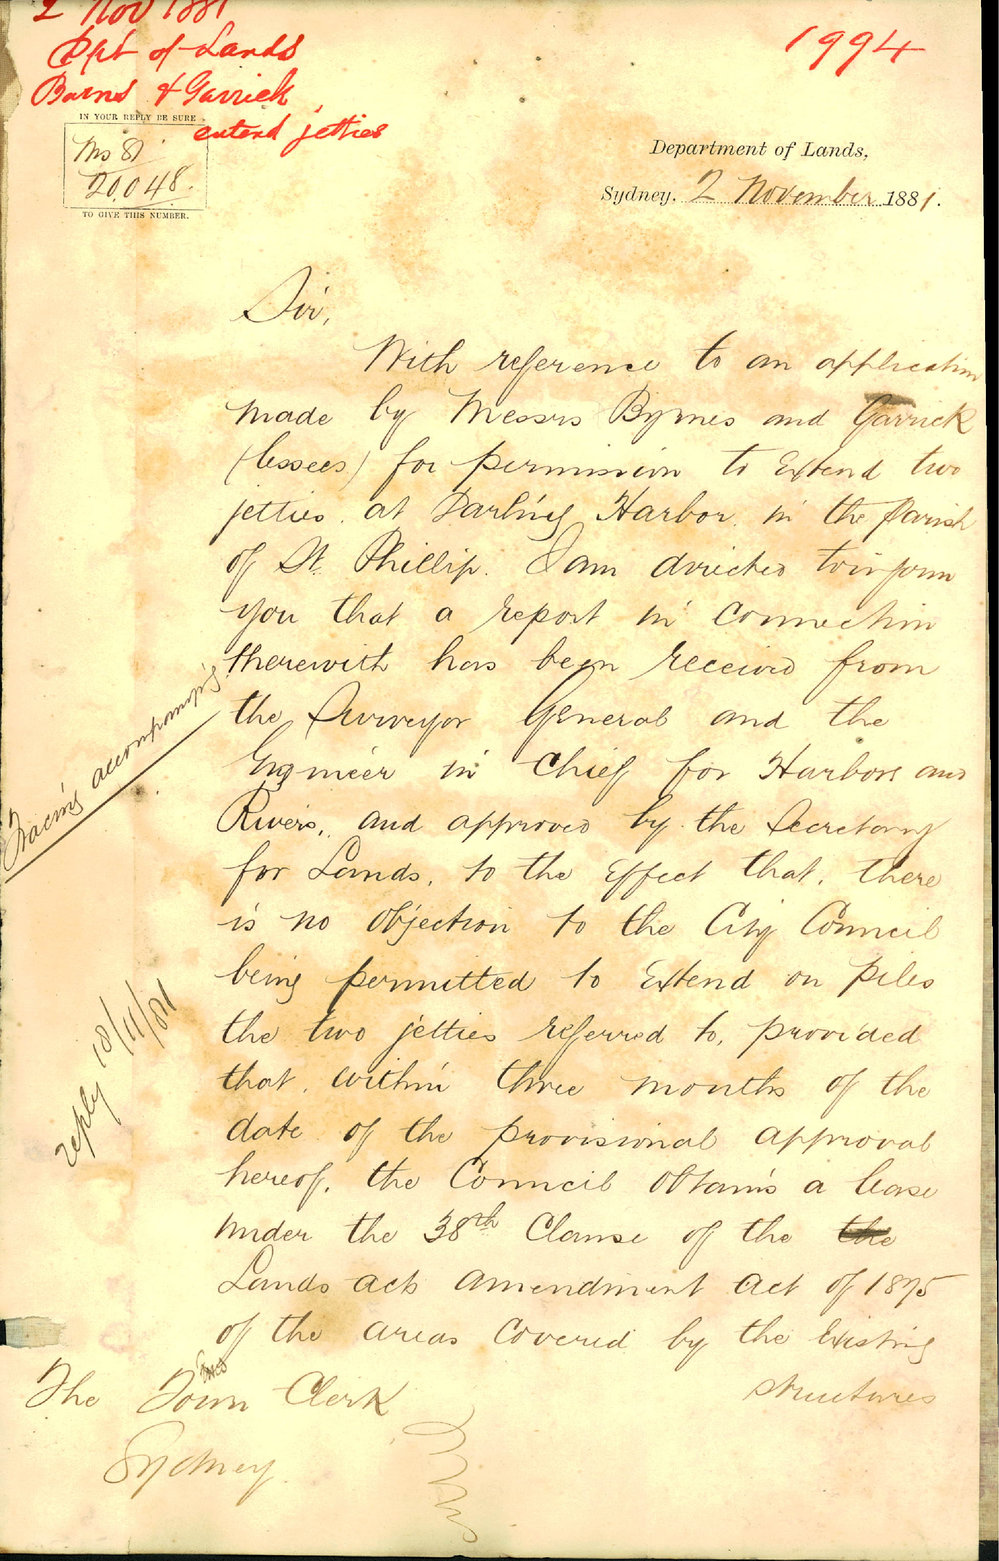 2 Nov 1881
Dpt of Lands
Barns & Garrick
extend jetties
1994
IN YOUR REPLY BE SURE
Ms 81
20.048.
TO GIVE THIS NUMBER.
Department of Lands,
Sydney, 2 November 1881.
Sir,
With reference to an application
made by Messrs Byrnes and Garrick
(lessees) for permission to Extend two
jetties at Darling Harbor in the Parish
of St. Phillip. I am directed to inform
you that a report in connection
therewith has been received from
the Surveyor General and the
Engineer in Chief for Harbors and
Rivers, and approved by the Secretary
for Lands, to the effect that, there
is no objection to the City Council
being permitted to Extend on piles
the two jetties referred to, provided
that within three months of the
date of the provisional approval
hereof, the Council obtains a lease
under the 38th Clause of the the
Lands acts amendment act of 1875
of the areas covered by the Existing
structures
The Town Clerk
Sydney
Tracing accompanying
reply 18/11/81